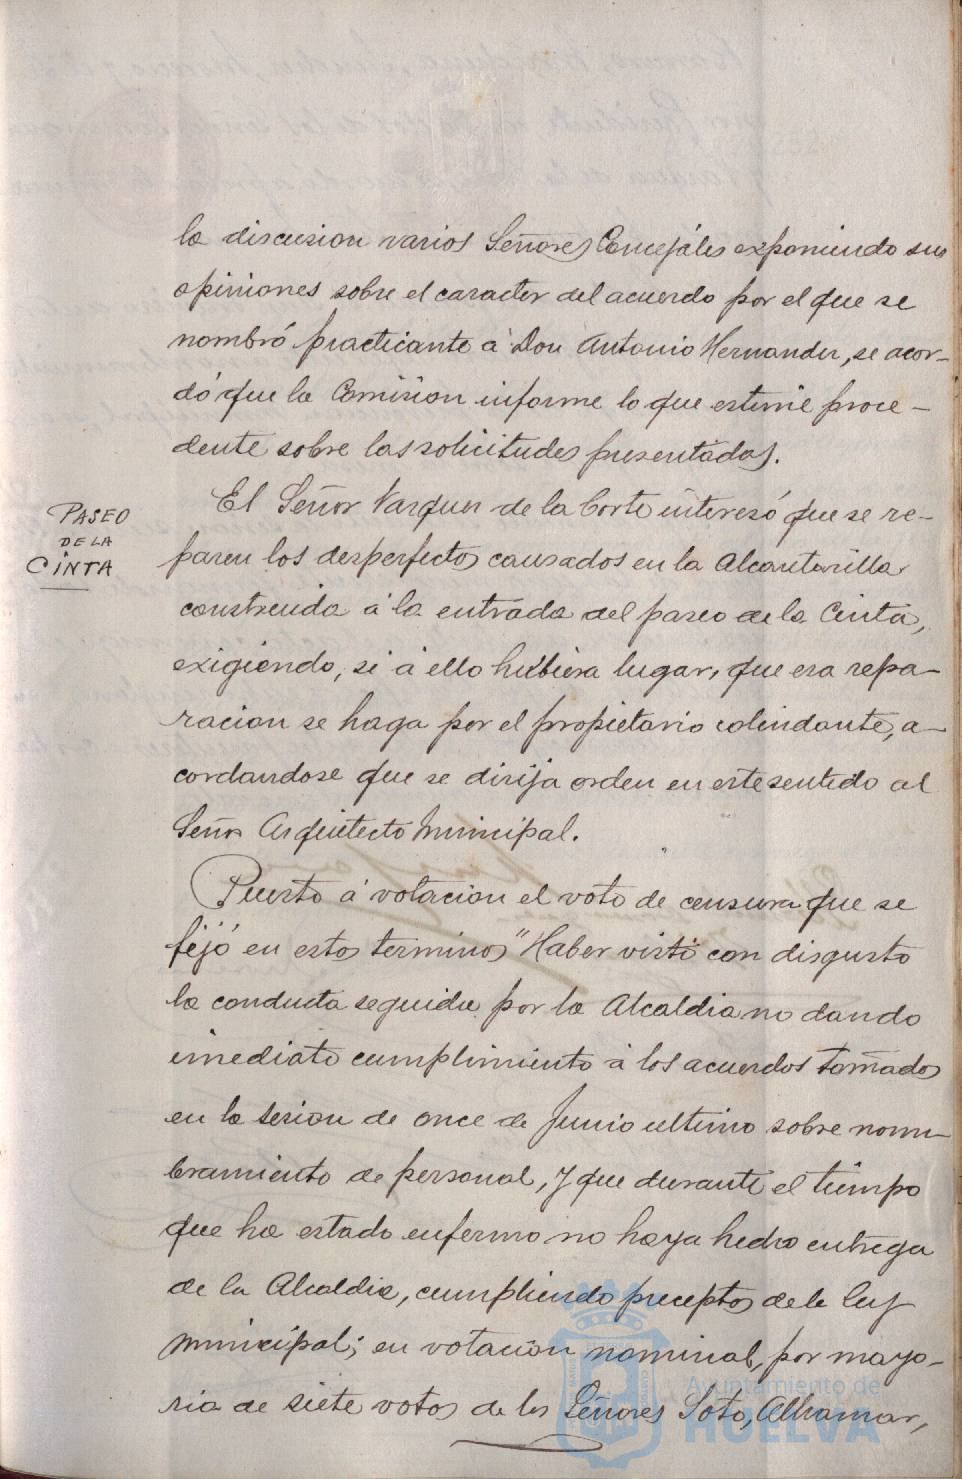 la discusion varios Señores Concejáles exponiendo sus
opiniones sobre el caracter del acuerdo por el que se
nombró practicante á Don Antonio Hernander, se acor-
dó que la Comision informe lo que estime proce-
dente sobre las solicitudes presentadas.
El Señor Vazquez de la Corte interesó que se re-
paren los desperfectos causados en la Alcantarilla
construida á la entrada del paseo de la Cinta,
PASEO
DE LA
CINTA
exigiendo, si á ello hubiera lugar, que esa repa-
racion se haga por el propietario colindante, a-
cordandose que se dirija orden en este sentido al
Señor Arquitecto Municipal.
Puesto á votacion el voto de censura que se
fijó en estos terminos "Haber visto con disgusto
la conducta seguida por la Alcaldia no dando
imediato cumplimiento á los acuerdos tomados
en la sesion de once de Junio ultimo sobre nom-
bramiento de personal, y que durante el tiempo
que ha estado enfermo no haya hecho entrega
de la Alcaldia, cumpliendo preceptos de la ley
Municipal; en votacion nominal, por mayo-
ria de siete votos de los Señores Soto, Alhamar,
Ayuntamiento de
HUELVA